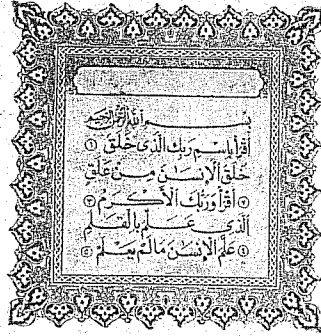 بِسْمِ اللَّهِ الرَّحْمَٰنِ الرَّحِيمِ
ٱقْرَأْ بِٱسْمِ رَبِّكَ ٱلَّذِى خَلَقَ ١
خَلَقَ ٱلْإِنسَٰنَ مِنْ عَلَقٍ
٢ ٱقْرَأْ وَرَبُّكَ ٱلْأَكْرَمُ ٣
ٱلَّذِى عَلَّمَ بِٱلْقَلَمِ
٤ عَلَّمَ ٱلْإِنسَٰنَ مَا لَمْ يَعْلَمْ ٥